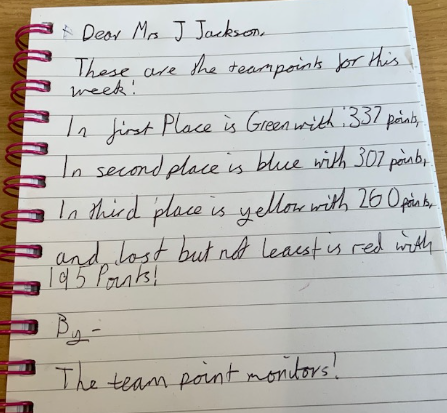 Dear Mrs J Jackson,
These are the teampoints for this
week!
In first Place is Green with :337 points,
In second place is blue with 307 points,
In third place is yellow with 260 points,
and lost but not leaest is red with
195 Points!
By -
The team point monitors!